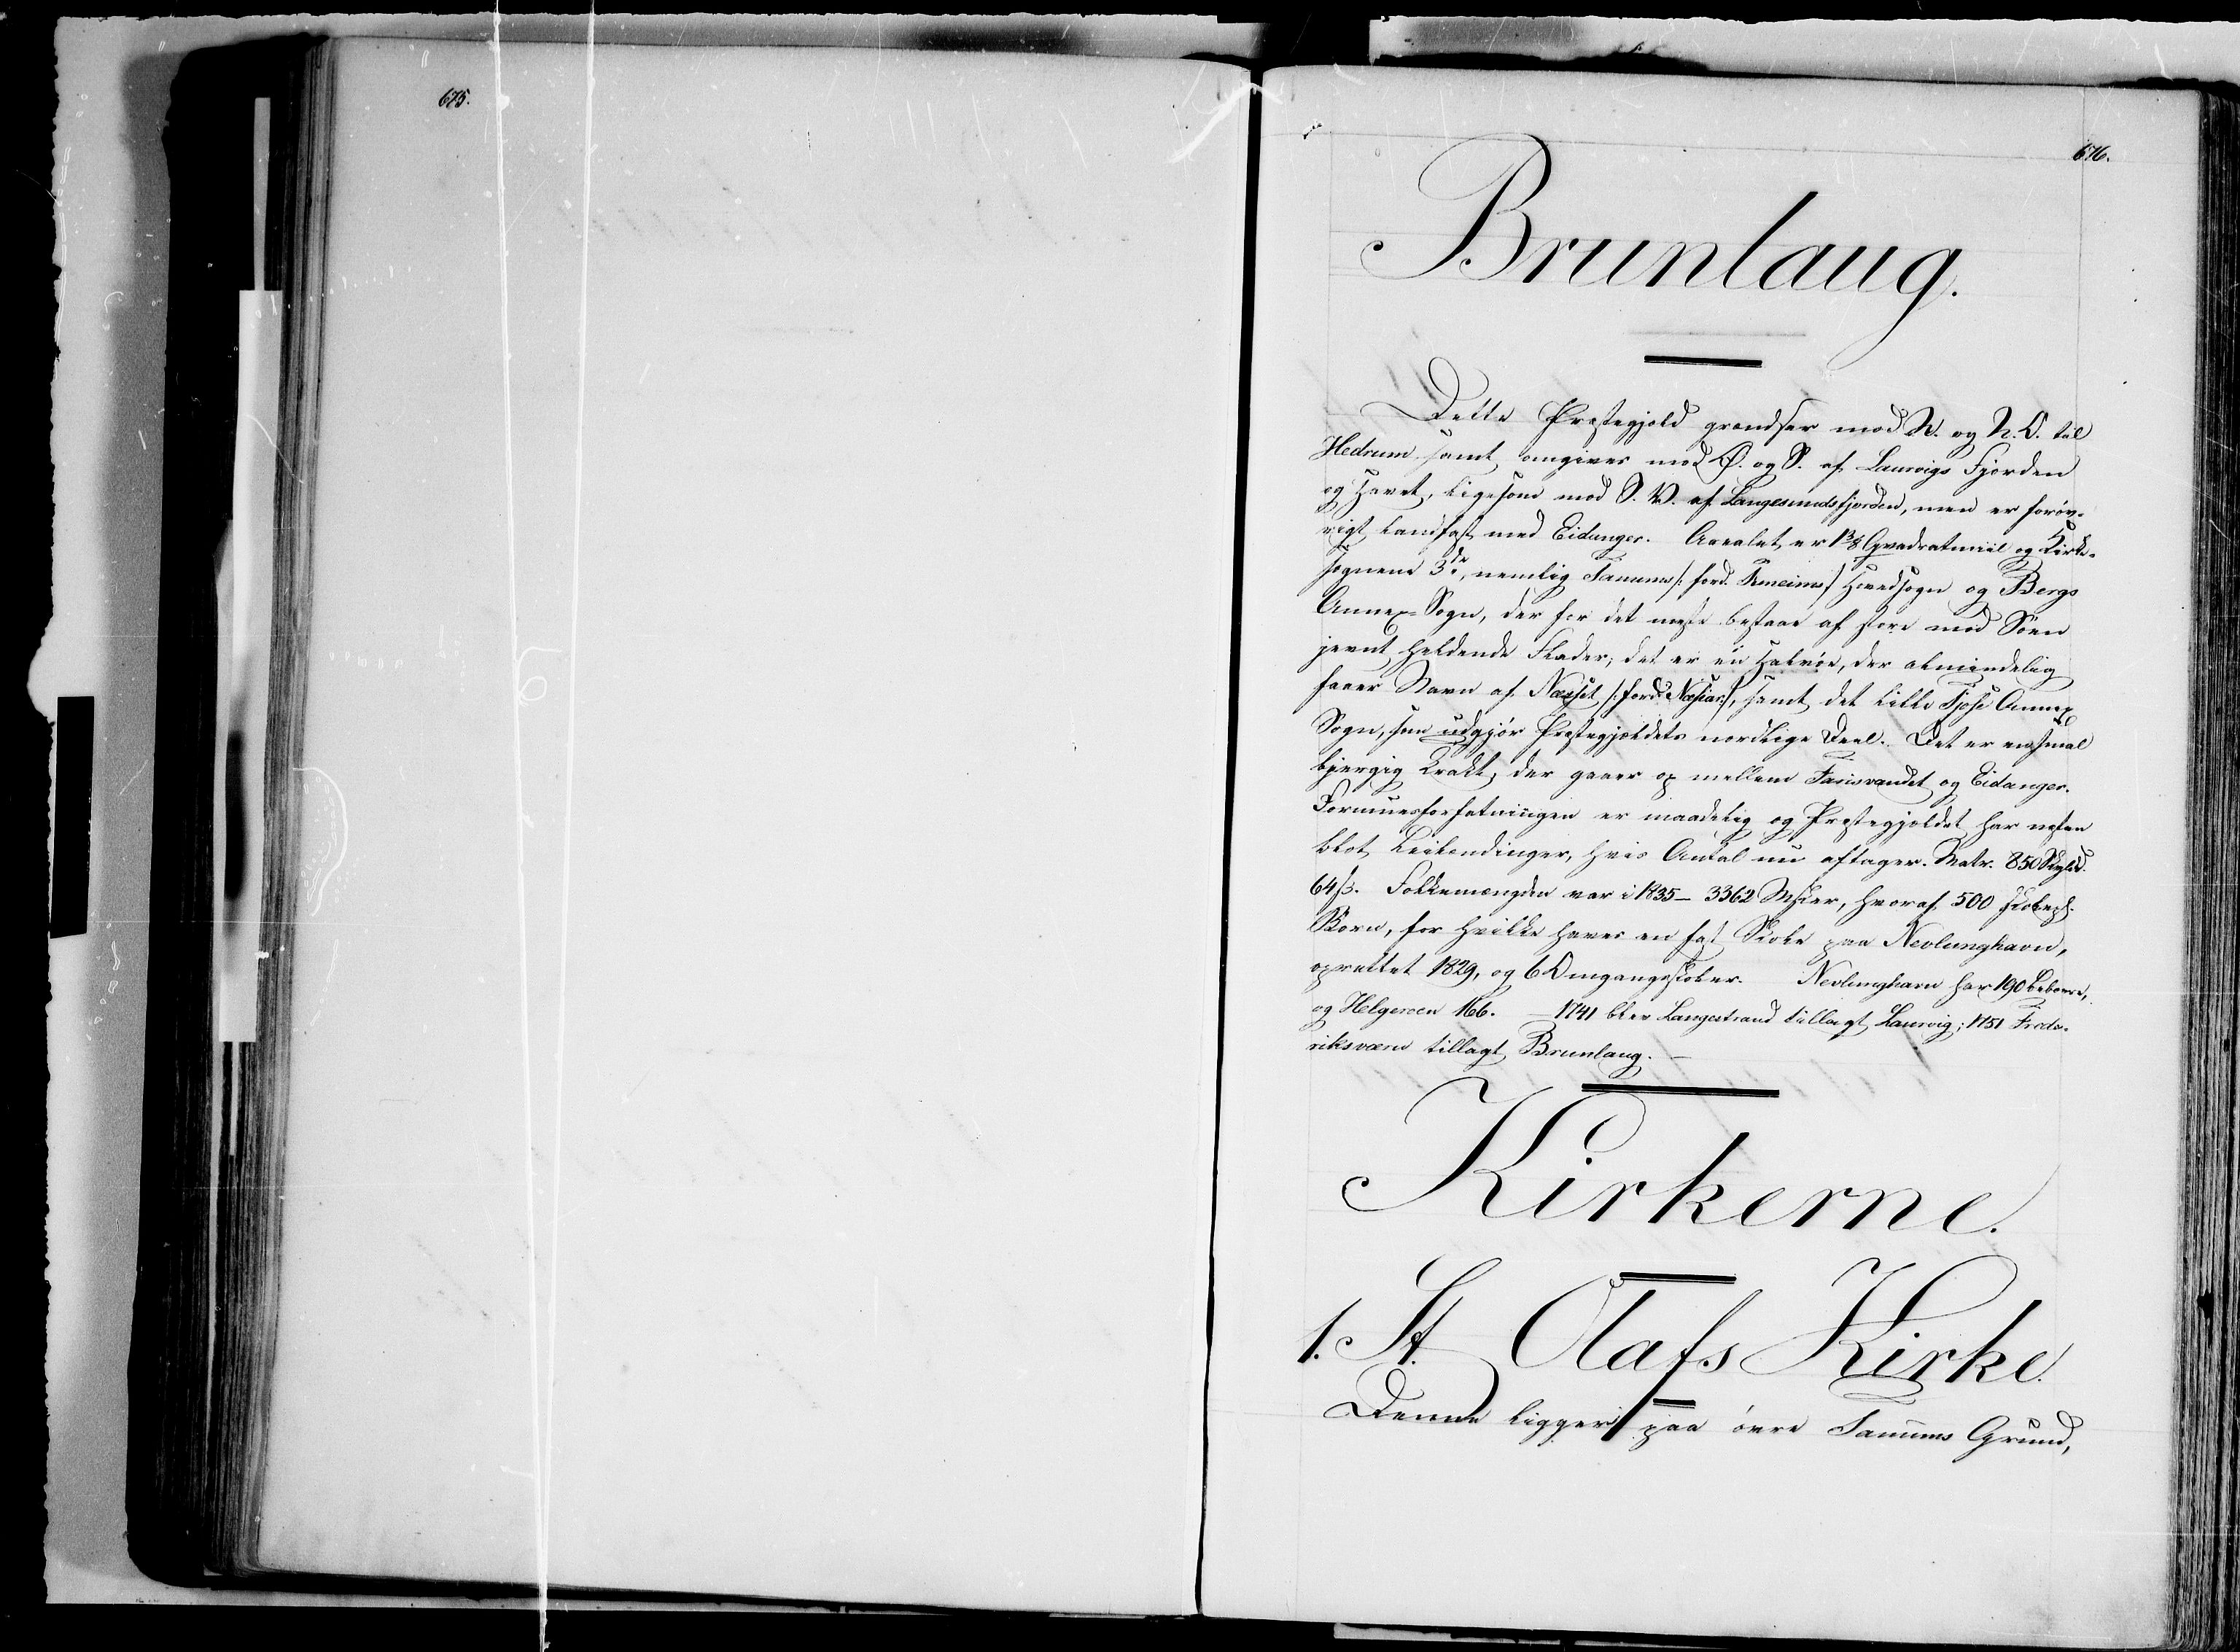 675.
676.
Brunlaug.
Dette Præstegjeld grændser mod N. og N. O. til
Hedrum samt omgives mod Ø. og S. af Laurvigs Fjorden
og Havet, ligesom mod S. V. af Langesundsfjorden, men er forøv-
rigt landfast med Eidanger. Arealet er 1 3/8 Qvadratmiil og Kirke-
sognene 3de, nemlig Tanums /: ford. :/ Hovedsogn og Bergs
Annex-Sogn, der for det meste bestaae af store mod Söen
jevnt heldende Flader; det er en Halvöe, der almindelig
faaer Navn af Næsset /: ford. Nesiar :/, samt det lille Tjöse Annex
Sogn, som udgjör Præstegjeldets nordlige Deel. Det er en smal
bjergig Trakt, der gaaer op mellem Farisvandet og Eidanger.
Formuesforfatningen er maadelig og Præstegjeldet har næsten
blot Leilendinger, hvis Antal nu aftager. Matr. 850 Skyld.
64 ß. Folkemængden var i 1835 - 3362 Msker, hvoraf 500 skolepl.
Börn, for hvilke haves en fast Skole paa Nevlunghavn,
oprettet 1829, og 6 Omgangsskoler. Nevlunghavn har 190 Beboere,
og Helgeroen 166. - 1741 blev Langestrand tillagt Laurvig; 1751 Frede-
riksværn tillagt Brunlaug. -
Kirkerne.
1. St. Olafs Kirke.
Denne ligger paa övre Tanums Grund,